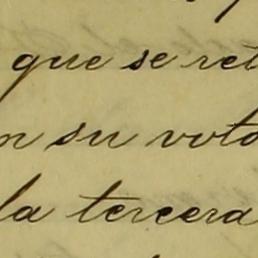 que se ret
n su voto
la tercera